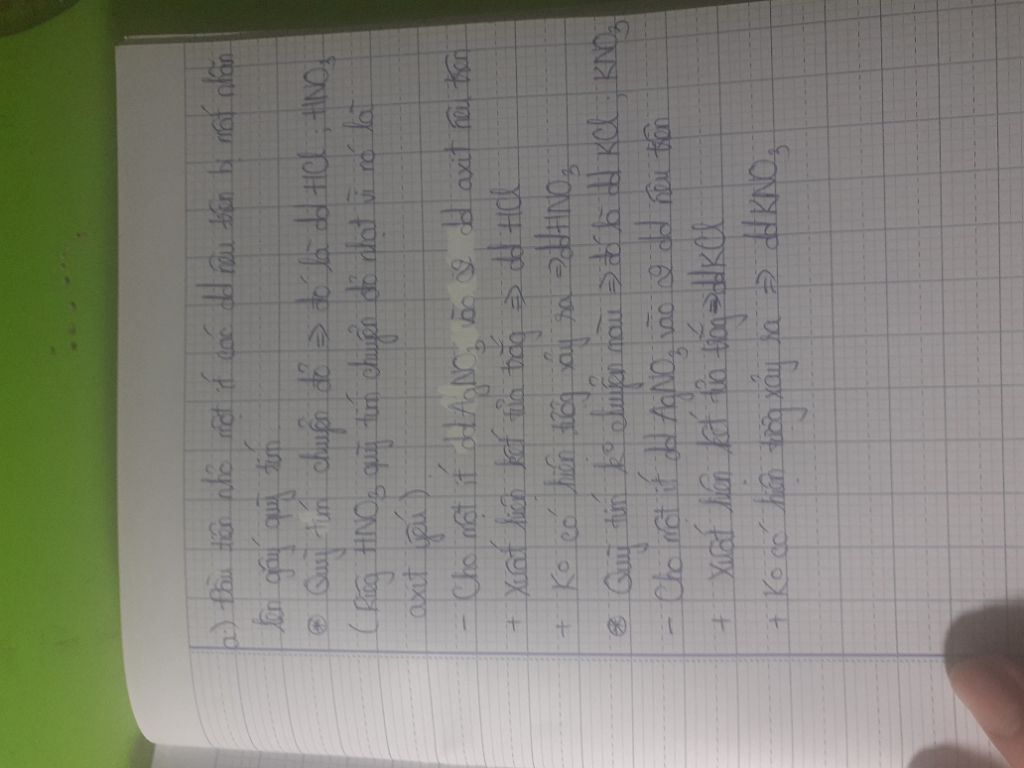 a) Đầu tiên nhỏ một ít các dd nêu trên bị mất nhãn
lên giấy quỳ tím
⊛ Quỳ tím chuyển đỏ => đó là dd HCl ; HNO3
( Riêng HNO3 quỳ tím chuyển đỏ nhạt vì nó là
axit yếu )
- Cho một ít dd AgNO3 vào 2 dd axit nêu trên
+ Xuất hiện kết tủa trắng => dd HCl
+ Ko có hiện tượng xảy ra => dd HNO3
⊛ Quỳ tím ko chuyển màu => đó là dd KCl ; KNO3
- Cho một ít dd AgNO3 vào 2 dd nêu trên
+ Xuất hiện kết tủa trắng => dd KCl
+ Ko có hiện tượng xảy ra => dd KNO3